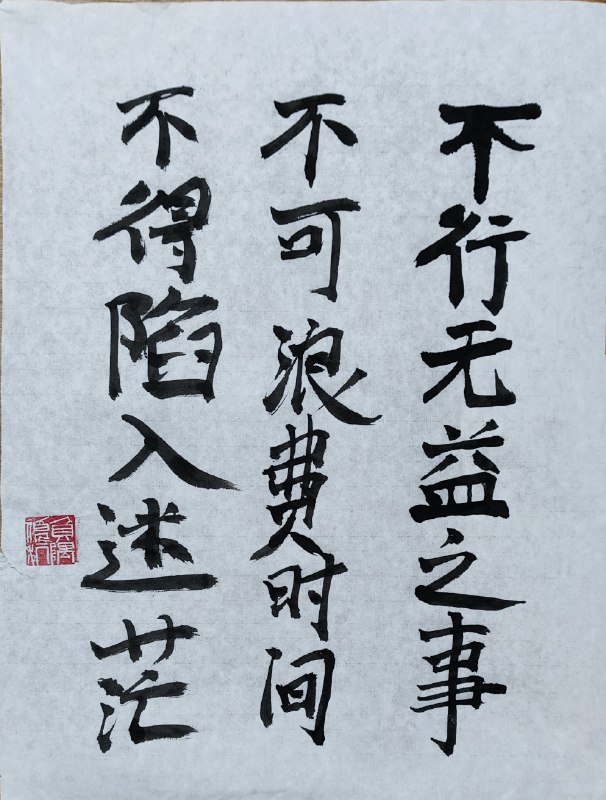 不行无益之事
不可浪费时间
不得陷入迷茫